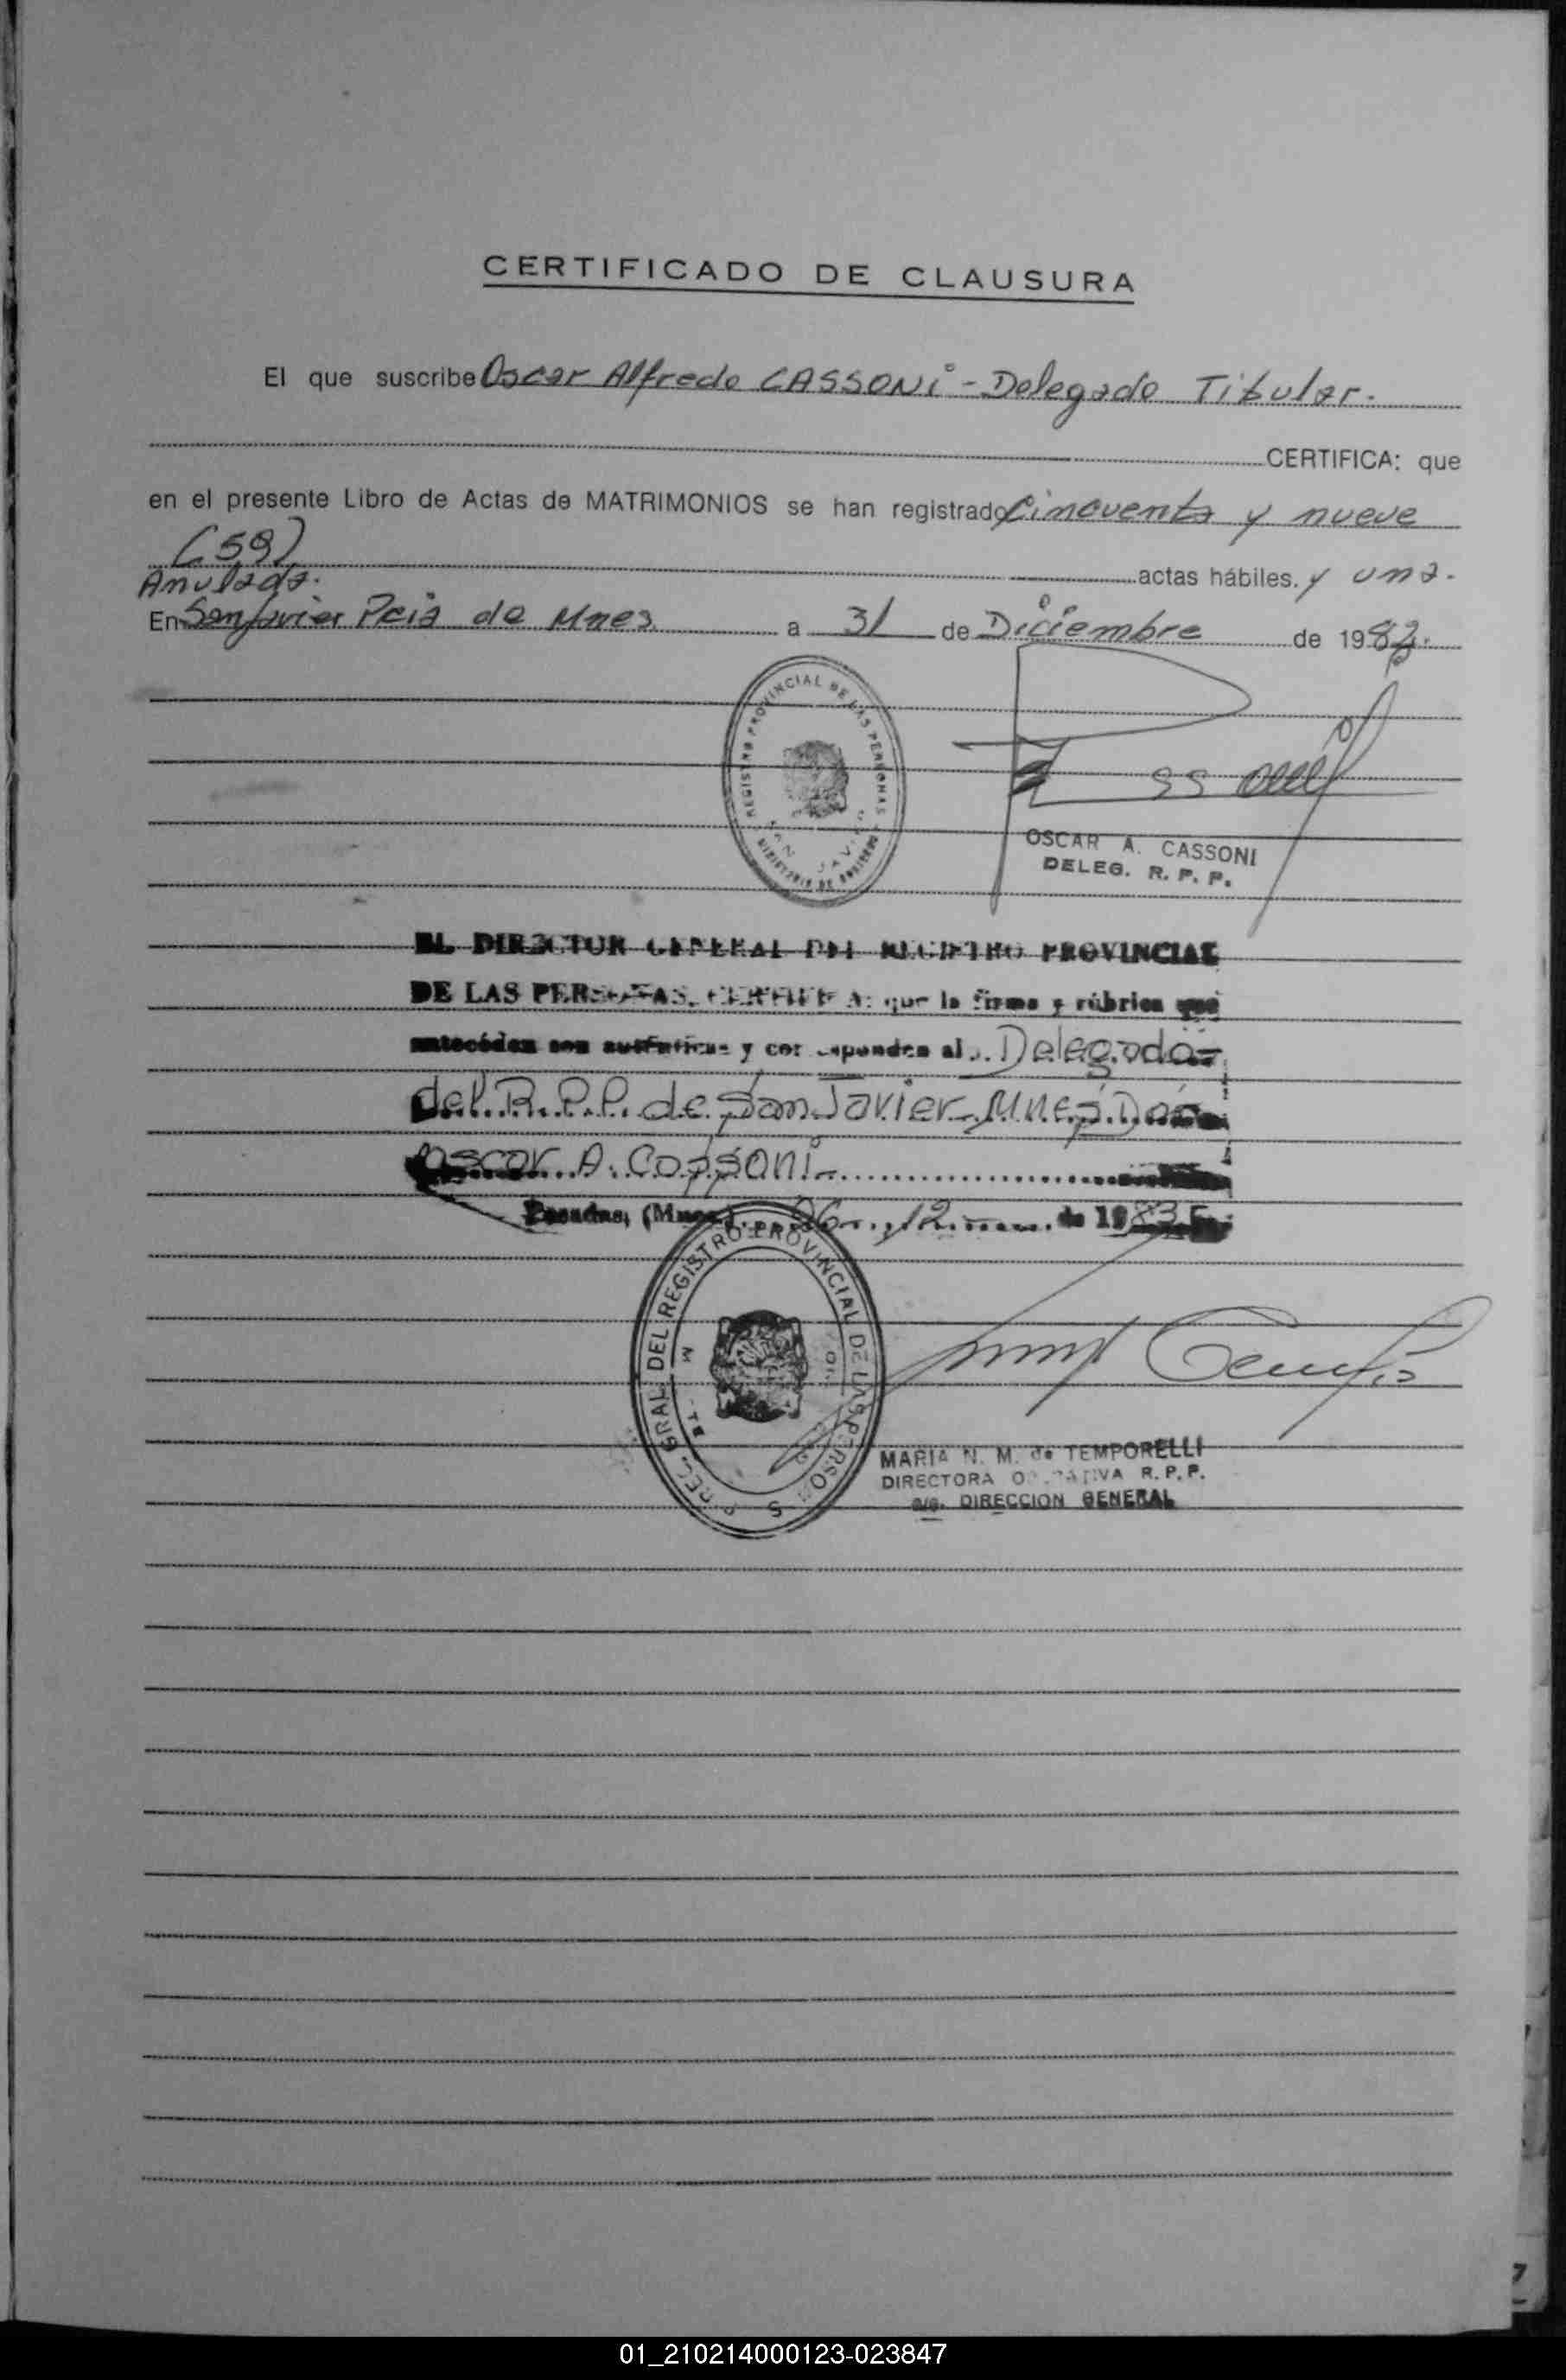 CERTIFICADO DE CLAUSURA
El que suscribe Oscar Alfredo CASSONi - Delegado Titular.
CERTIFICA: que
en el presente Libro de Actas de MATRIMONIOS se han registrado Cincuenta y nueve
(59) actas hábiles, y una.
Anulada.
En San Javier Pcia de Mnes a 31 de Diciembre de 198
REGISTRO PROVINCIAL DE LAS PERSONAS
SAN JAVIER
MINISTERIO DE GOBIERNO
OSCAR A. CASSONI
DELEG. R. P. P.
EL DIRECTOR GENERAL DEL REGISTRO PROVINCIAL
DE LAS PERSONAS, CERTIFICA: que la firma y rúbrica que
anteceden son auténticas y corresponden al Delegado
del R.P.P. de San Javier Mnes Don
Oscar A. Cassoni
Posadas, (Mnes.) 06 12 de 1983
GRAL. DEL REGISTRO PROVINCIAL DE LAS PERSONAS
MARIA N. M. de TEMPORELLI
DIRECTORA OPERATIVA R. P. P.
a/c. DIRECCION GENERAL
01_210214000123-023847